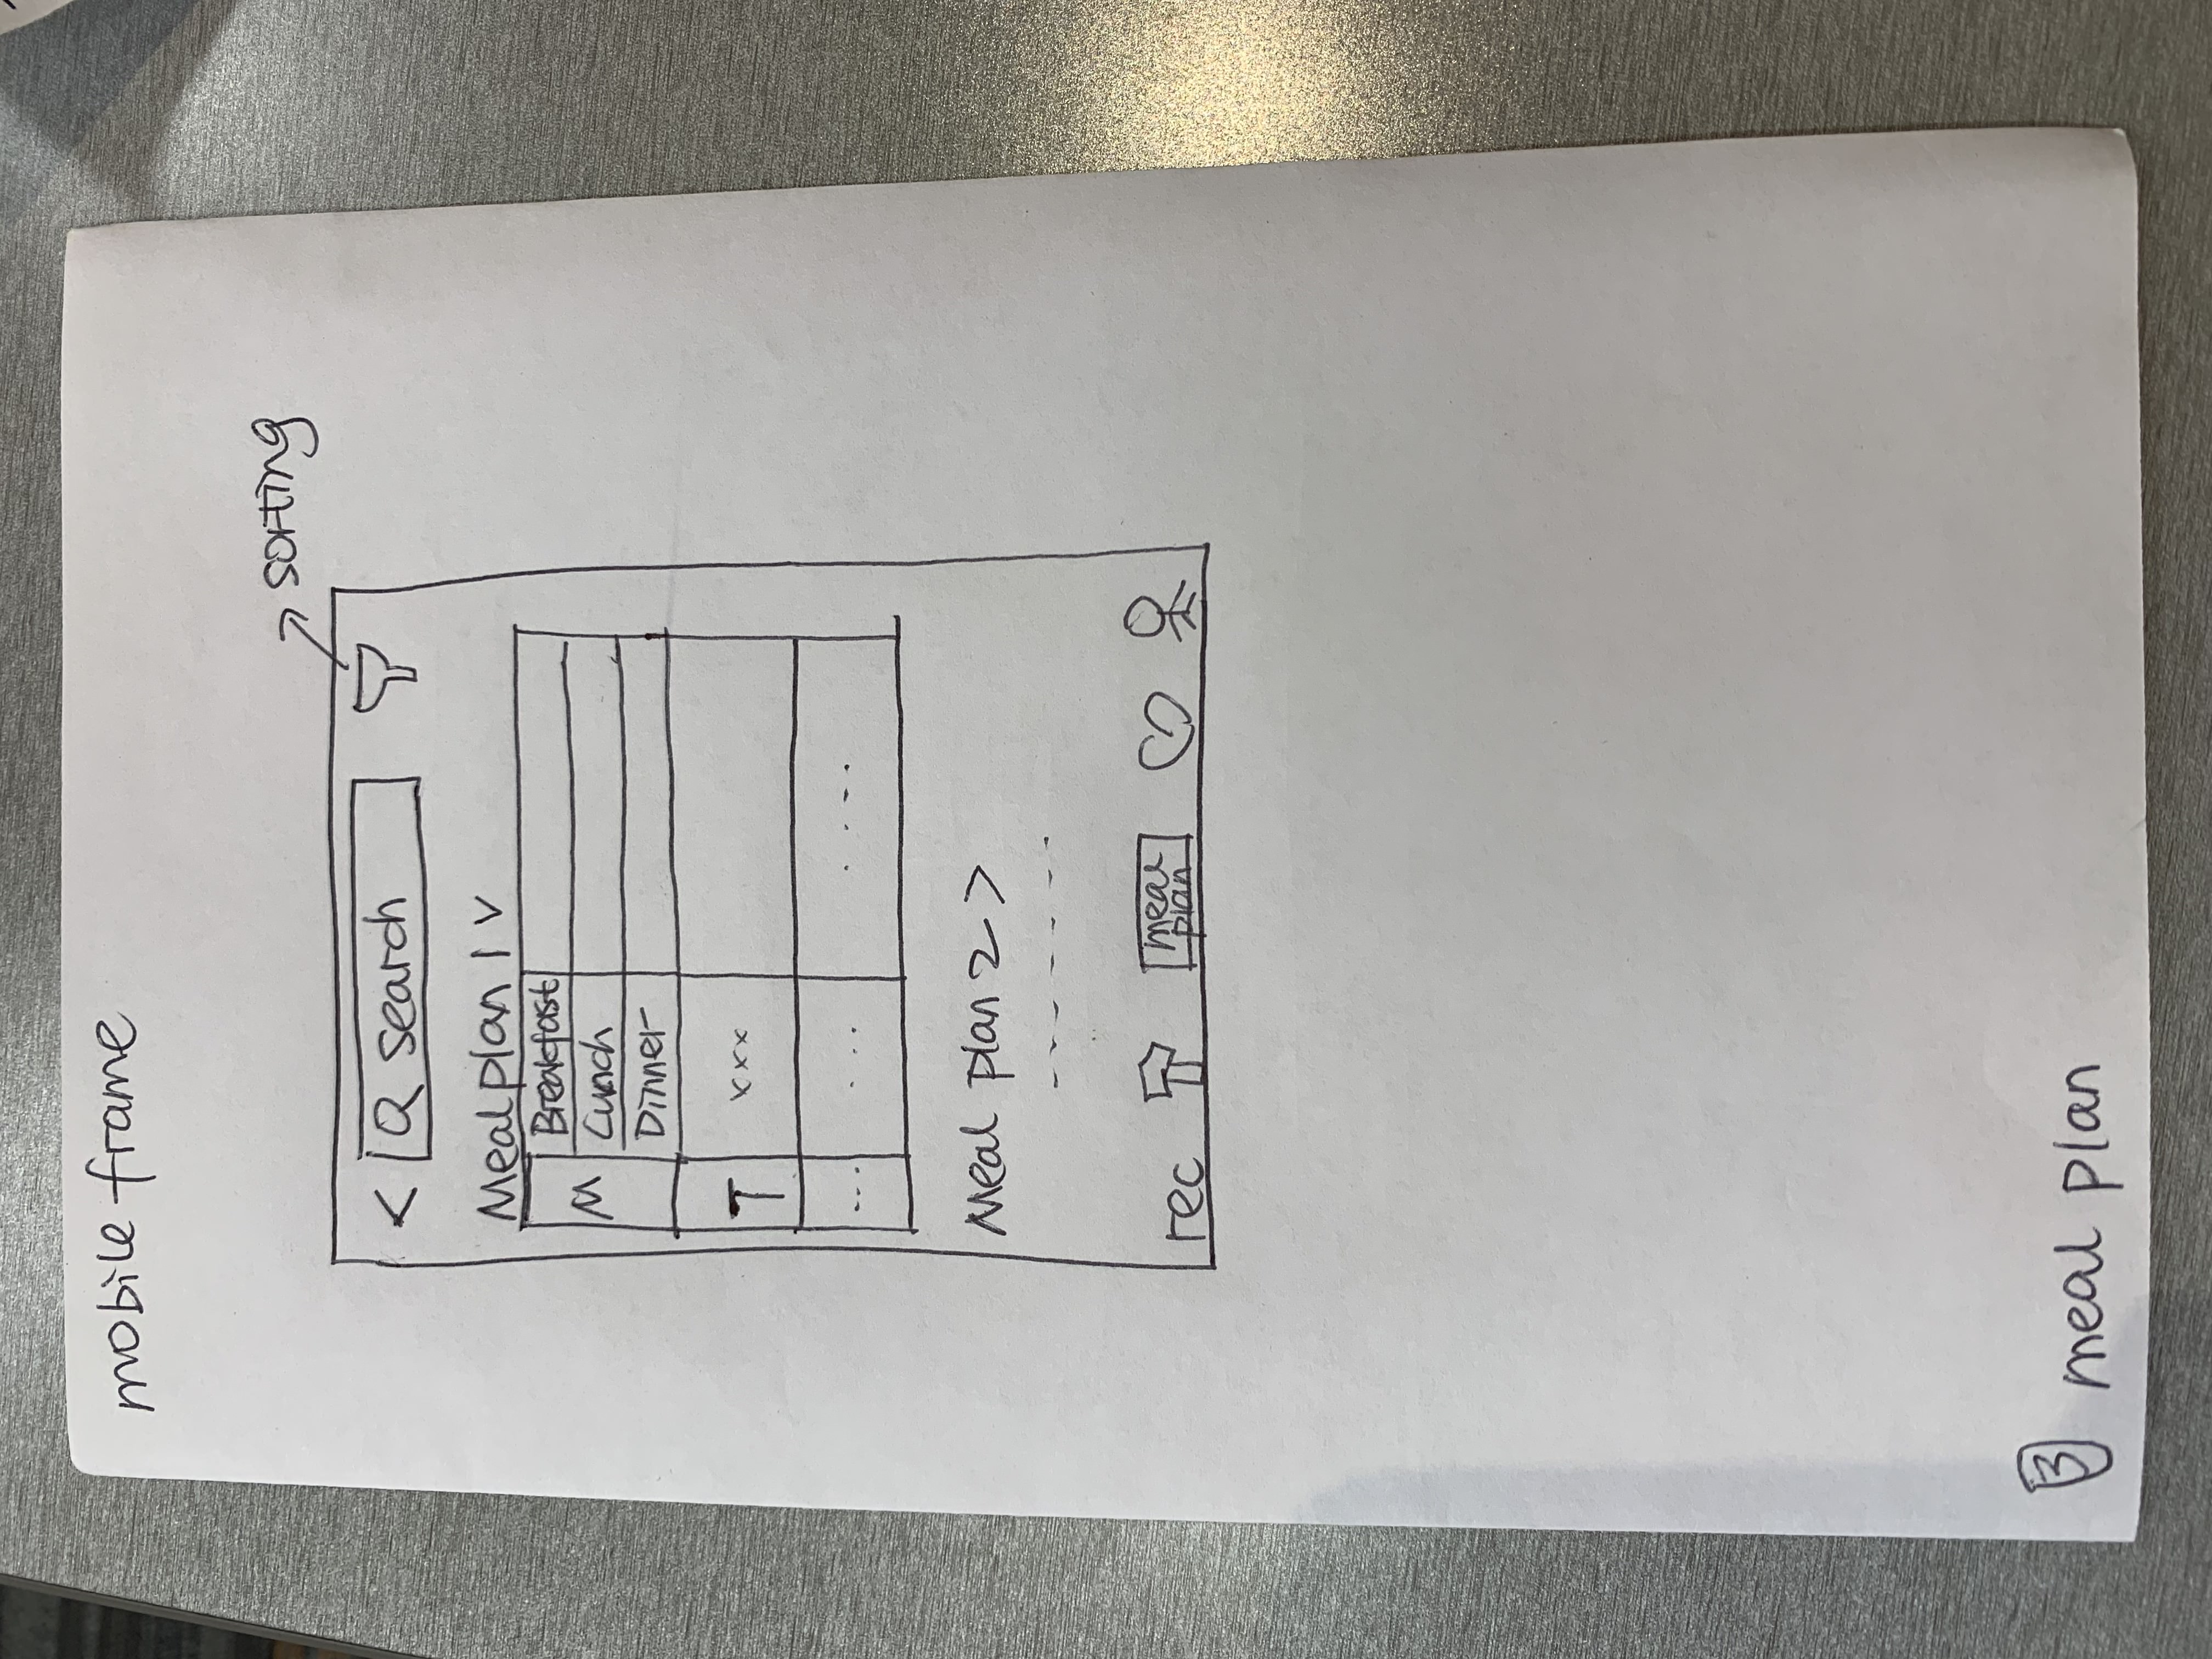 mobile frame
sorting
< Q search
Meal plan 1 v
M
Breakfast
Lunch
Dinner
T
xxx
... ... ....
Meal plan 2 >
rec
meal
plan
3 meal plan